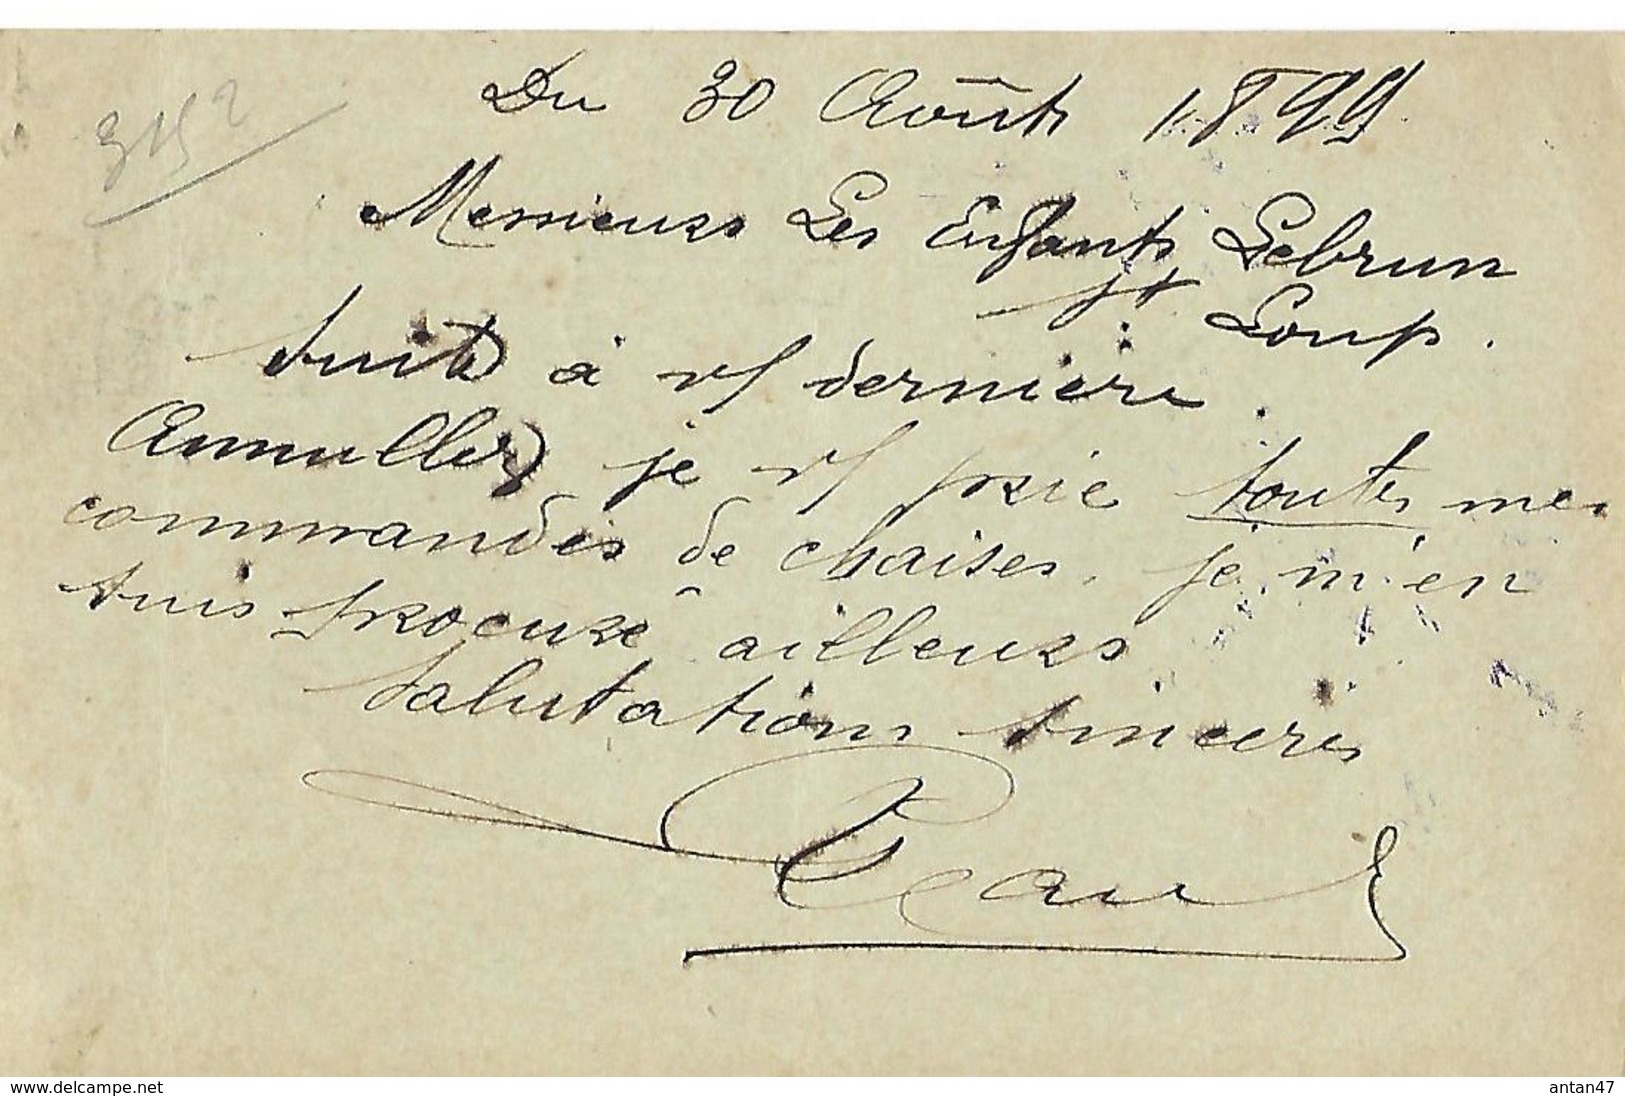 Du 30 Août 1899.
Messieurs Les Enfants Lebrun
St Loup.
Suite à v/ dernière.
Annullez je v/ prie toutes mes
commandes de chaises. je m'en
suis procuré ailleurs
Salutations sincères
www.delcampe.net
antan47